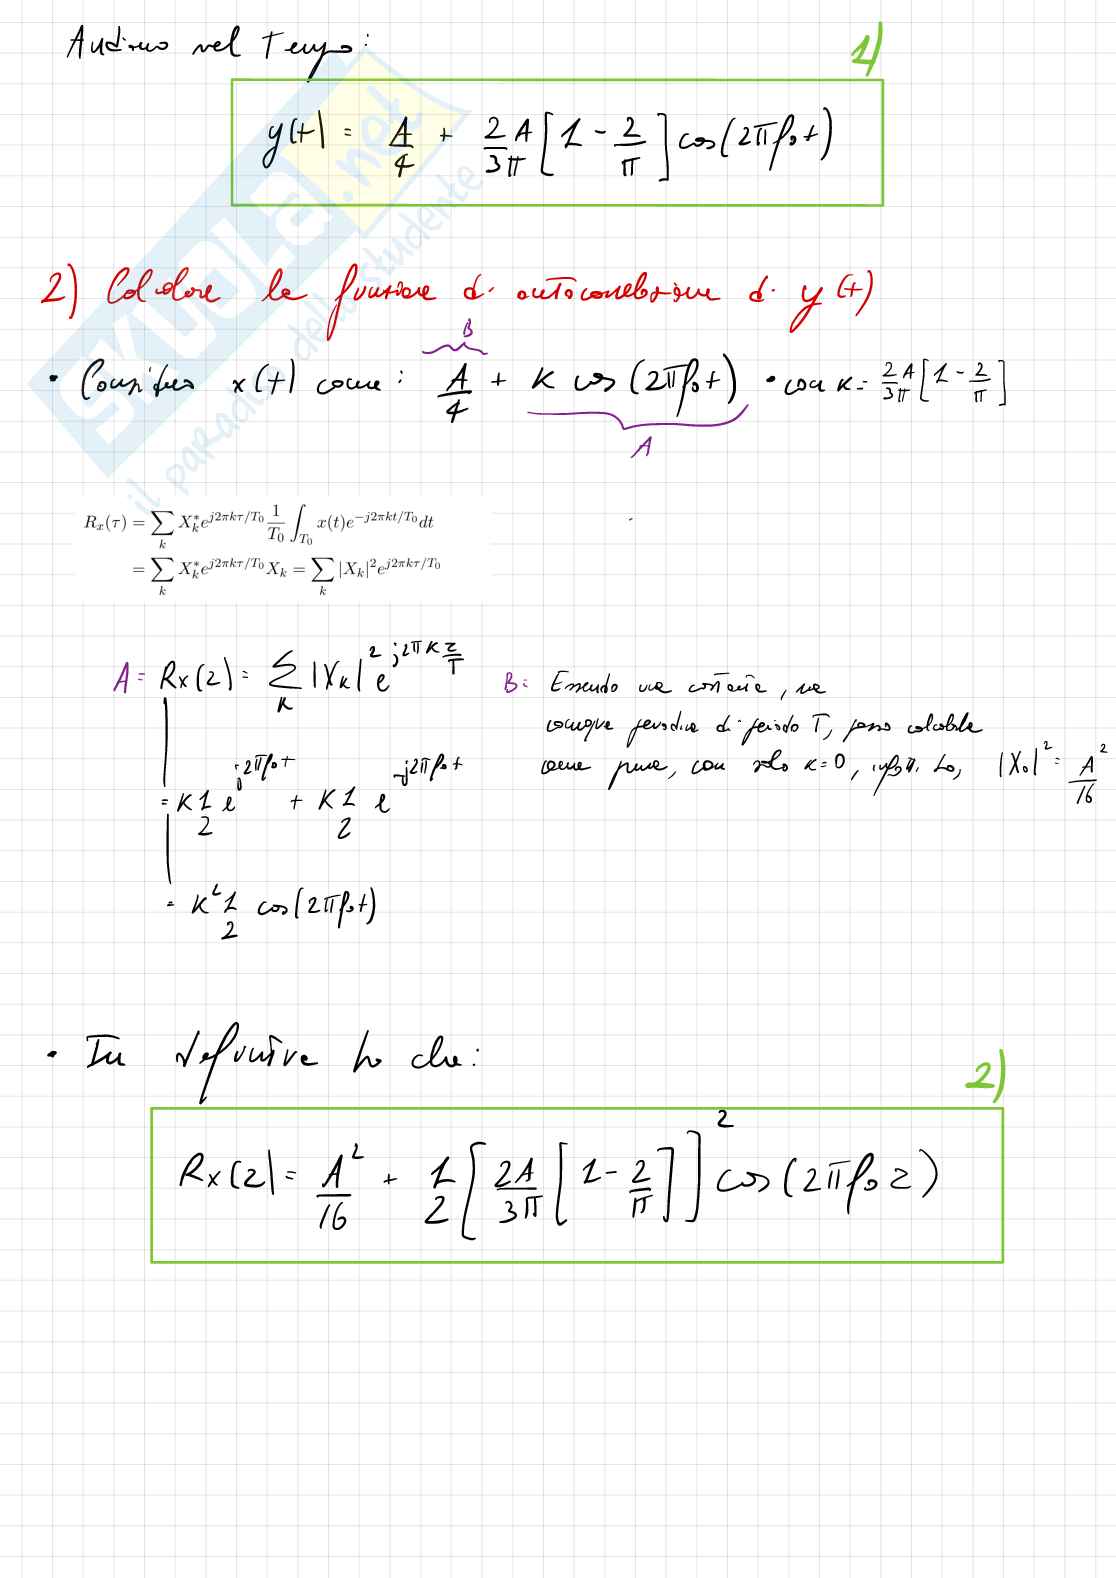 Andiamo nel Tempo:
1)
y(t) = A/4 + 2/3 A/π [1 - 2/π] cos(2πf₀t)
2) Calcolare la funzione di autocorrelazione di y(t)
B
• Considero x(t) come: A/4 + K cos(2πf₀t) • con K = 2/3 A/π [1 - 2/π]
A
R_x(τ) = ∑_k X_k^* e^{j2πkτ/T₀} 1/T₀ ∫_{T₀} x(t)e^{-j2πkt/T₀} dt
= ∑_k X_k^* e^{j2πkτ/T₀} X_k = ∑_k |X_k|² e^{j2πkτ/T₀}
A = Rx(τ) = ∑_K |X_K|² e^{j2πK τ/T}
= K 1/2 e^{j2πf₀t} + K 1/2 e^{-j2πf₀t}
= K² 1/2 cos(2πf₀t)
B: Essendo una costante, ma
comunque periodica di periodo T, posso calcolarla
come prima, con solo K=0, infatti ho, |X₀|² = A²/16
• In definitiva ho che:
2)
Rx(τ) = A²/16 + 1/2 [2A/3π [1 - 2/π]]² cos(2πf₀τ)
SKUOLA.net
il paradiso dello studente